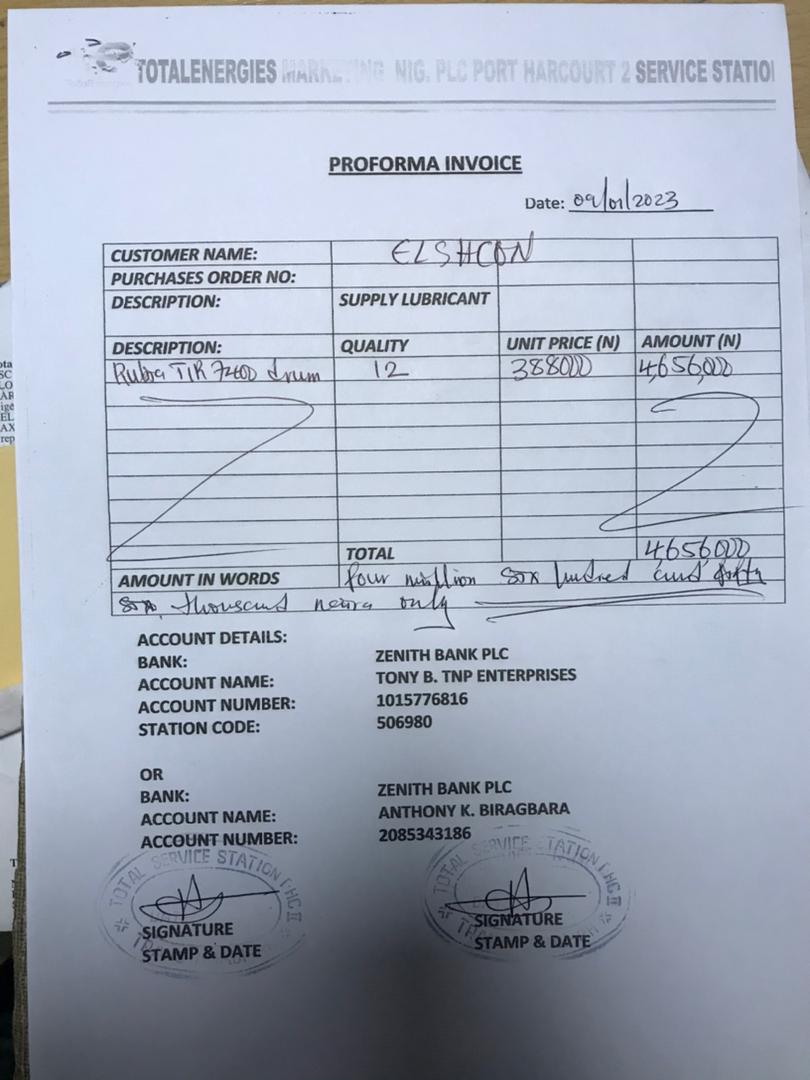 TOTALENERGIES MARKETING NIG. PLC PORT HARCOURT 2 SERVICE STATIO
PROFORMA INVOICE
Date: 09/01/2023
CUSTOMER NAME: ELSHCON
PURCHASES ORDER NO:
DESCRIPTION: SUPPLY LUBRICANT
DESCRIPTION: QUALITY UNIT PRICE (N) AMOUNT (N)
Rubia TIR 7400 drum 12 388000 4,656,000
TOTAL 4656000
AMOUNT IN WORDS four million six hundred and fifty
six thousand naira only
ACCOUNT DETAILS:
BANK: ZENITH BANK PLC
ACCOUNT NAME: TONY B. TNP ENTERPRISES
ACCOUNT NUMBER: 1015776816
STATION CODE: 506980
OR
BANK: ZENITH BANK PLC
ACCOUNT NAME: ANTHONY K. BIRAGBARA
ACCOUNT NUMBER: 2085343186
TOTAL SERVICE STATION PHC II
TOTAL SERVICE STATION PHC II
SIGNATURE SIGNATURE
STAMP & DATE STAMP & DATE